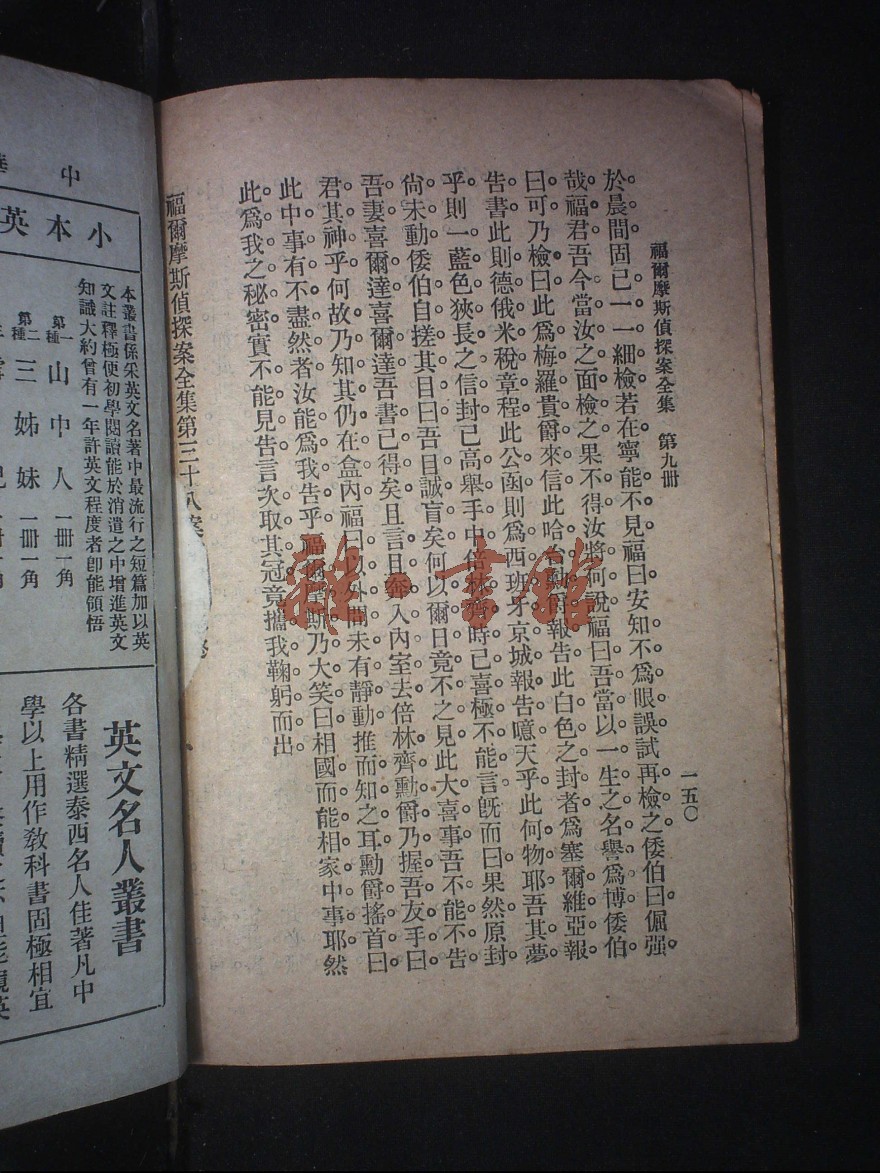 福爾摩斯偵探案全集　第九册
一五〇
於晨間固已一一細檢若在寧能不見。福曰。安知不爲眼誤。試再檢之。倭伯曰。倔强
哉福君。吾今當汝之面檢之。果不得。汝將何說。福曰。吾當以一生之名譽爲博。倭伯
曰。可。乃檢曰。此爲梅羅貴爵來信。此哈台勳爵報告。此白色之封者。爲塞爾維亞報
告書。此則德俄米稅章程。此公函則爲西班牙京城報告。噫。天乎。此何物耶。吾其夢
乎。則一藍色狹長之信封。已高舉手中。倍林齊時已喜極不能言。旣而曰。果然原封
尙未動。倭伯自搓其目曰。吾目誠盲矣。何以爾日竟不之見。此大喜事。吾不能不告
吾妻喜爾達。喜爾達。吾書已得矣。且言且奔入內室去。倍林齊勳爵乃握吾友手曰。
君其神乎。何故乃知其仍在盒內。福曰。以外間未有靜動。推而知之耳。勳爵搖首曰。
此中事有不盡然者。汝能爲我告乎。福爾摩斯乃大笑曰。相國而能相家中事耶。然
此爲我之祕密。實不能見告。言次取其冠。竟攜我鞠躬而出
福爾摩斯偵探案全集第三十八案
中
小本英
本叢書係采英文名著中最流行之短篇加以英
文註釋極便初學閱讀能於消遣之中增進英文
知識大約曾有一年許英文程度者卽能領悟
第一種 山中人 一册一角
第二種 三姊妹 一册一角
英文名人叢書
各書精選泰西名人佳著凡中
學以上用作敎科書固極相宜
雜·書館